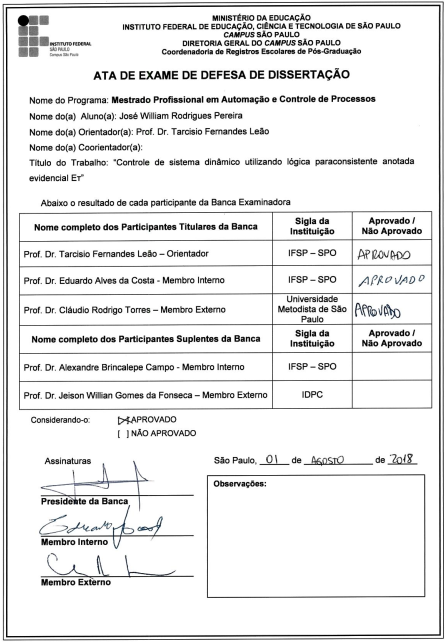 INSTITUTO FEDERAL
SÃO PAULO
Campus São Paulo
MINISTÉRIO DA EDUCAÇÃO
INSTITUTO FEDERAL DE EDUCAÇÃO, CIÊNCIA E TECNOLOGIA DE SÃO PAULO
CAMPUS SÃO PAULO
DIRETORIA GERAL DO CAMPUS SÃO PAULO
Coordenadoria de Registros Escolares de Pós-Graduação
ATA DE EXAME DE DEFESA DE DISSERTAÇÃO
Nome do Programa: Mestrado Profissional em Automação e Controle de Processos
Nome do(a) Aluno(a): José William Rodrigues Pereira
Nome do(a) Orientador(a): Prof. Dr. Tarcisio Fernandes Leão
Nome do(a) Coorientador(a):
Título do Trabalho: "Controle de sistema dinâmico utilizando lógica paraconsistente anotada
evidencial Eτ"
Abaixo o resultado de cada participante da Banca Examinadora
Nome completo dos Participantes Titulares da Banca
Sigla da
Instituição
Aprovado /
Não Aprovado
Prof. Dr. Tarcisio Fernandes Leão – Orientador
IFSP – SPO
APROVADO
Prof. Dr. Eduardo Alves da Costa - Membro Interno
IFSP – SPO
APROVADO
Prof. Dr. Cláudio Rodrigo Torres – Membro Externo
Universidade
Metodista de São
Paulo
APROVADO
Nome completo dos Participantes Suplentes da Banca
Sigla da
Instituição
Aprovado /
Não Aprovado
Prof. Dr. Alexandre Brincalepe Campo - Membro Interno
IFSP – SPO
Prof. Dr. Jeison Willian Gomes da Fonseca – Membro Externo
IDPC
Considerando-o:
[X]APROVADO
[ ] NÃO APROVADO
Assinaturas
São Paulo, 01 de AGOSTO de 2018
Observações:
Presidente da Banca
Eduardo
Membro Interno
Membro Externo